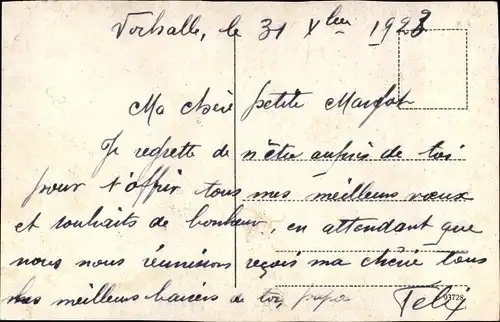 Vorhalle, le 31 Xbre 1923
Ma chère petite Margot
Je regrette de n'être auprès de toi
pour t'offrir tous mes meilleurs vœux
et souhaits de bonheur, en attendant que
nous nous réunissions reçois ma chérie tous
mes meilleurs baisers de ton papa
Felix
03728